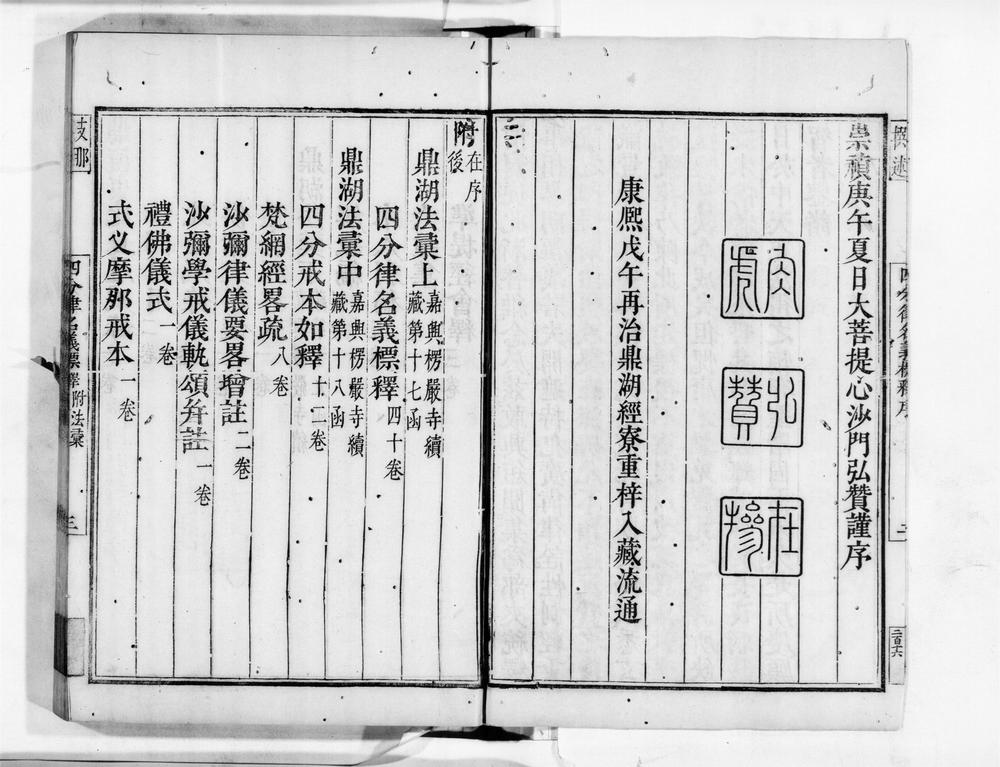 撰述
崇禎庚午夏日大菩提心沙門弘贊謹序
弘贊
在犙
康熙戊午再治鼎湖經寮重梓入藏流通
附在序後
鼎湖法彙上嘉興楞嚴寺續藏第十七函
四分律名義標釋四十卷
鼎湖法彙中嘉興楞嚴寺續藏第十八函
四分戒本如釋十二卷
梵網經畧疏八卷
沙彌律儀要畧增註二卷
沙彌學戒儀軌頌并註一卷
禮佛儀式一卷
式叉摩那戒本一卷
支那
四分律名義標釋附法彙
三